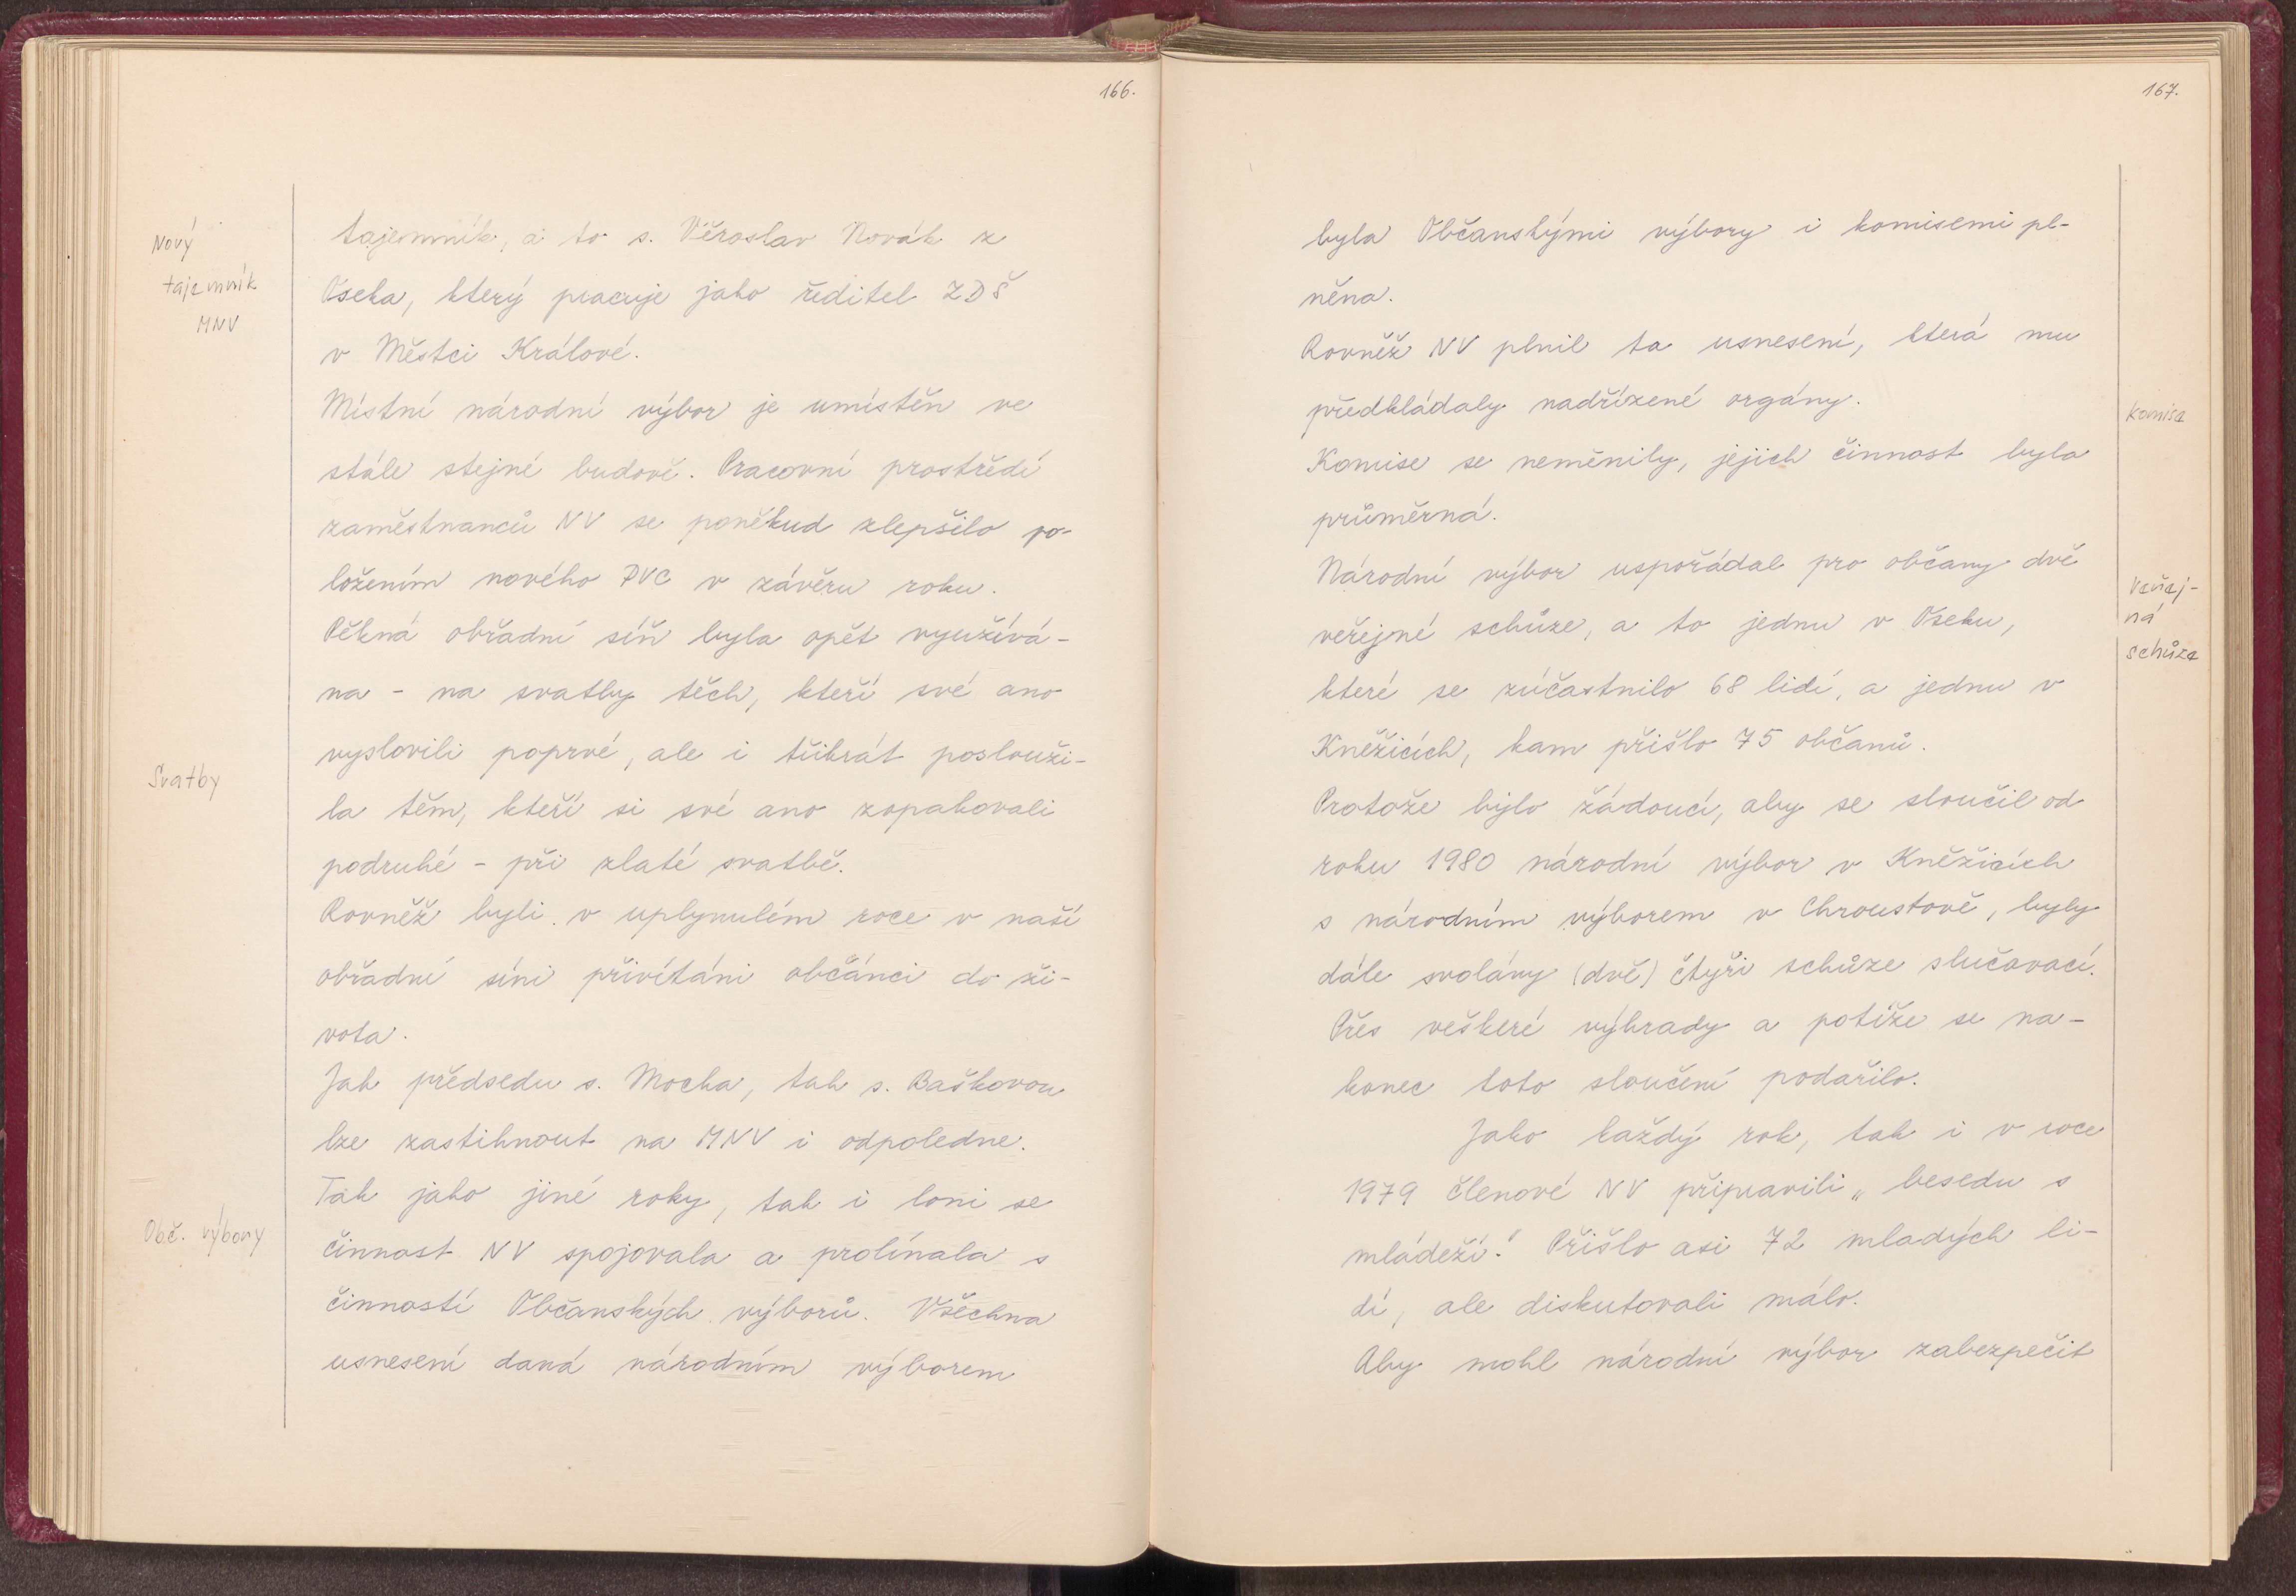 166.
Nový
tajemník
MNV
tajemník, a to s. Věroslav Novák z
Oseka, který pracuje jako ředitel ZDŠ
v Městci Králové.
Místní národní výbor je umístěn ve
stále stejné budově. Pracovní prostředí
zaměstnanců NV se poněkud zlepšilo po-
ložením nového PVC v závěru roku.
Pěkná obřadní síň byla opět využívá-
na - na svatby těch, kteří své ano
vyslovili poprvé, ale i třikrát poslouži-
Svatby
la těm, kteří si své ano zopakovali
podruhé - při zlaté svatbě.
Rovněž byli v uplynulém roce v naší
obřadní síni přivítáni občánci do ži-
vota.
Jak předsedu s. Mocka, tak s. Baškovou
lze zastihnout na MNV i odpoledne.
Tak jako jiné roky, tak i loni se
Obč. výbory
činnost NV spojovala a prolínala s
činností Občanských výborů. Všechna
usnesení daná národním výborem
167.
byla Občanskými výbory i komisemi pl-
něna.
Rovněž NV plnil ta usnesení, která mu
předkládaly nadřízené orgány.
Komise
Komise se neměnily, jejich činnost byla
průměrná.
Národní výbor uspořádal pro občany dvě
Veřej-
ná
schůze
veřejné schůze, a to jednu v Oseku,
které se zúčastnilo 68 lidí, a jednu v
Kněžicích, kam přišlo 75 občanů.
Protože bylo žádoucí, aby se sloučil od
roku 1980 národní výbor v Kněžicích
s národním výborem v Chroustově, byly
dále svolány (dvě) čtyři schůze slučovací.
Přes veškeré výhrady a potíže se na-
konec toto sloučení podařilo.
Jako každý rok, tak i v roce
1979 členové NV připravili „besedu s
mládeží." Přišlo asi 72 mladých li-
dí, ale diskutovali málo.
Aby mohl národní výbor zabezpečit